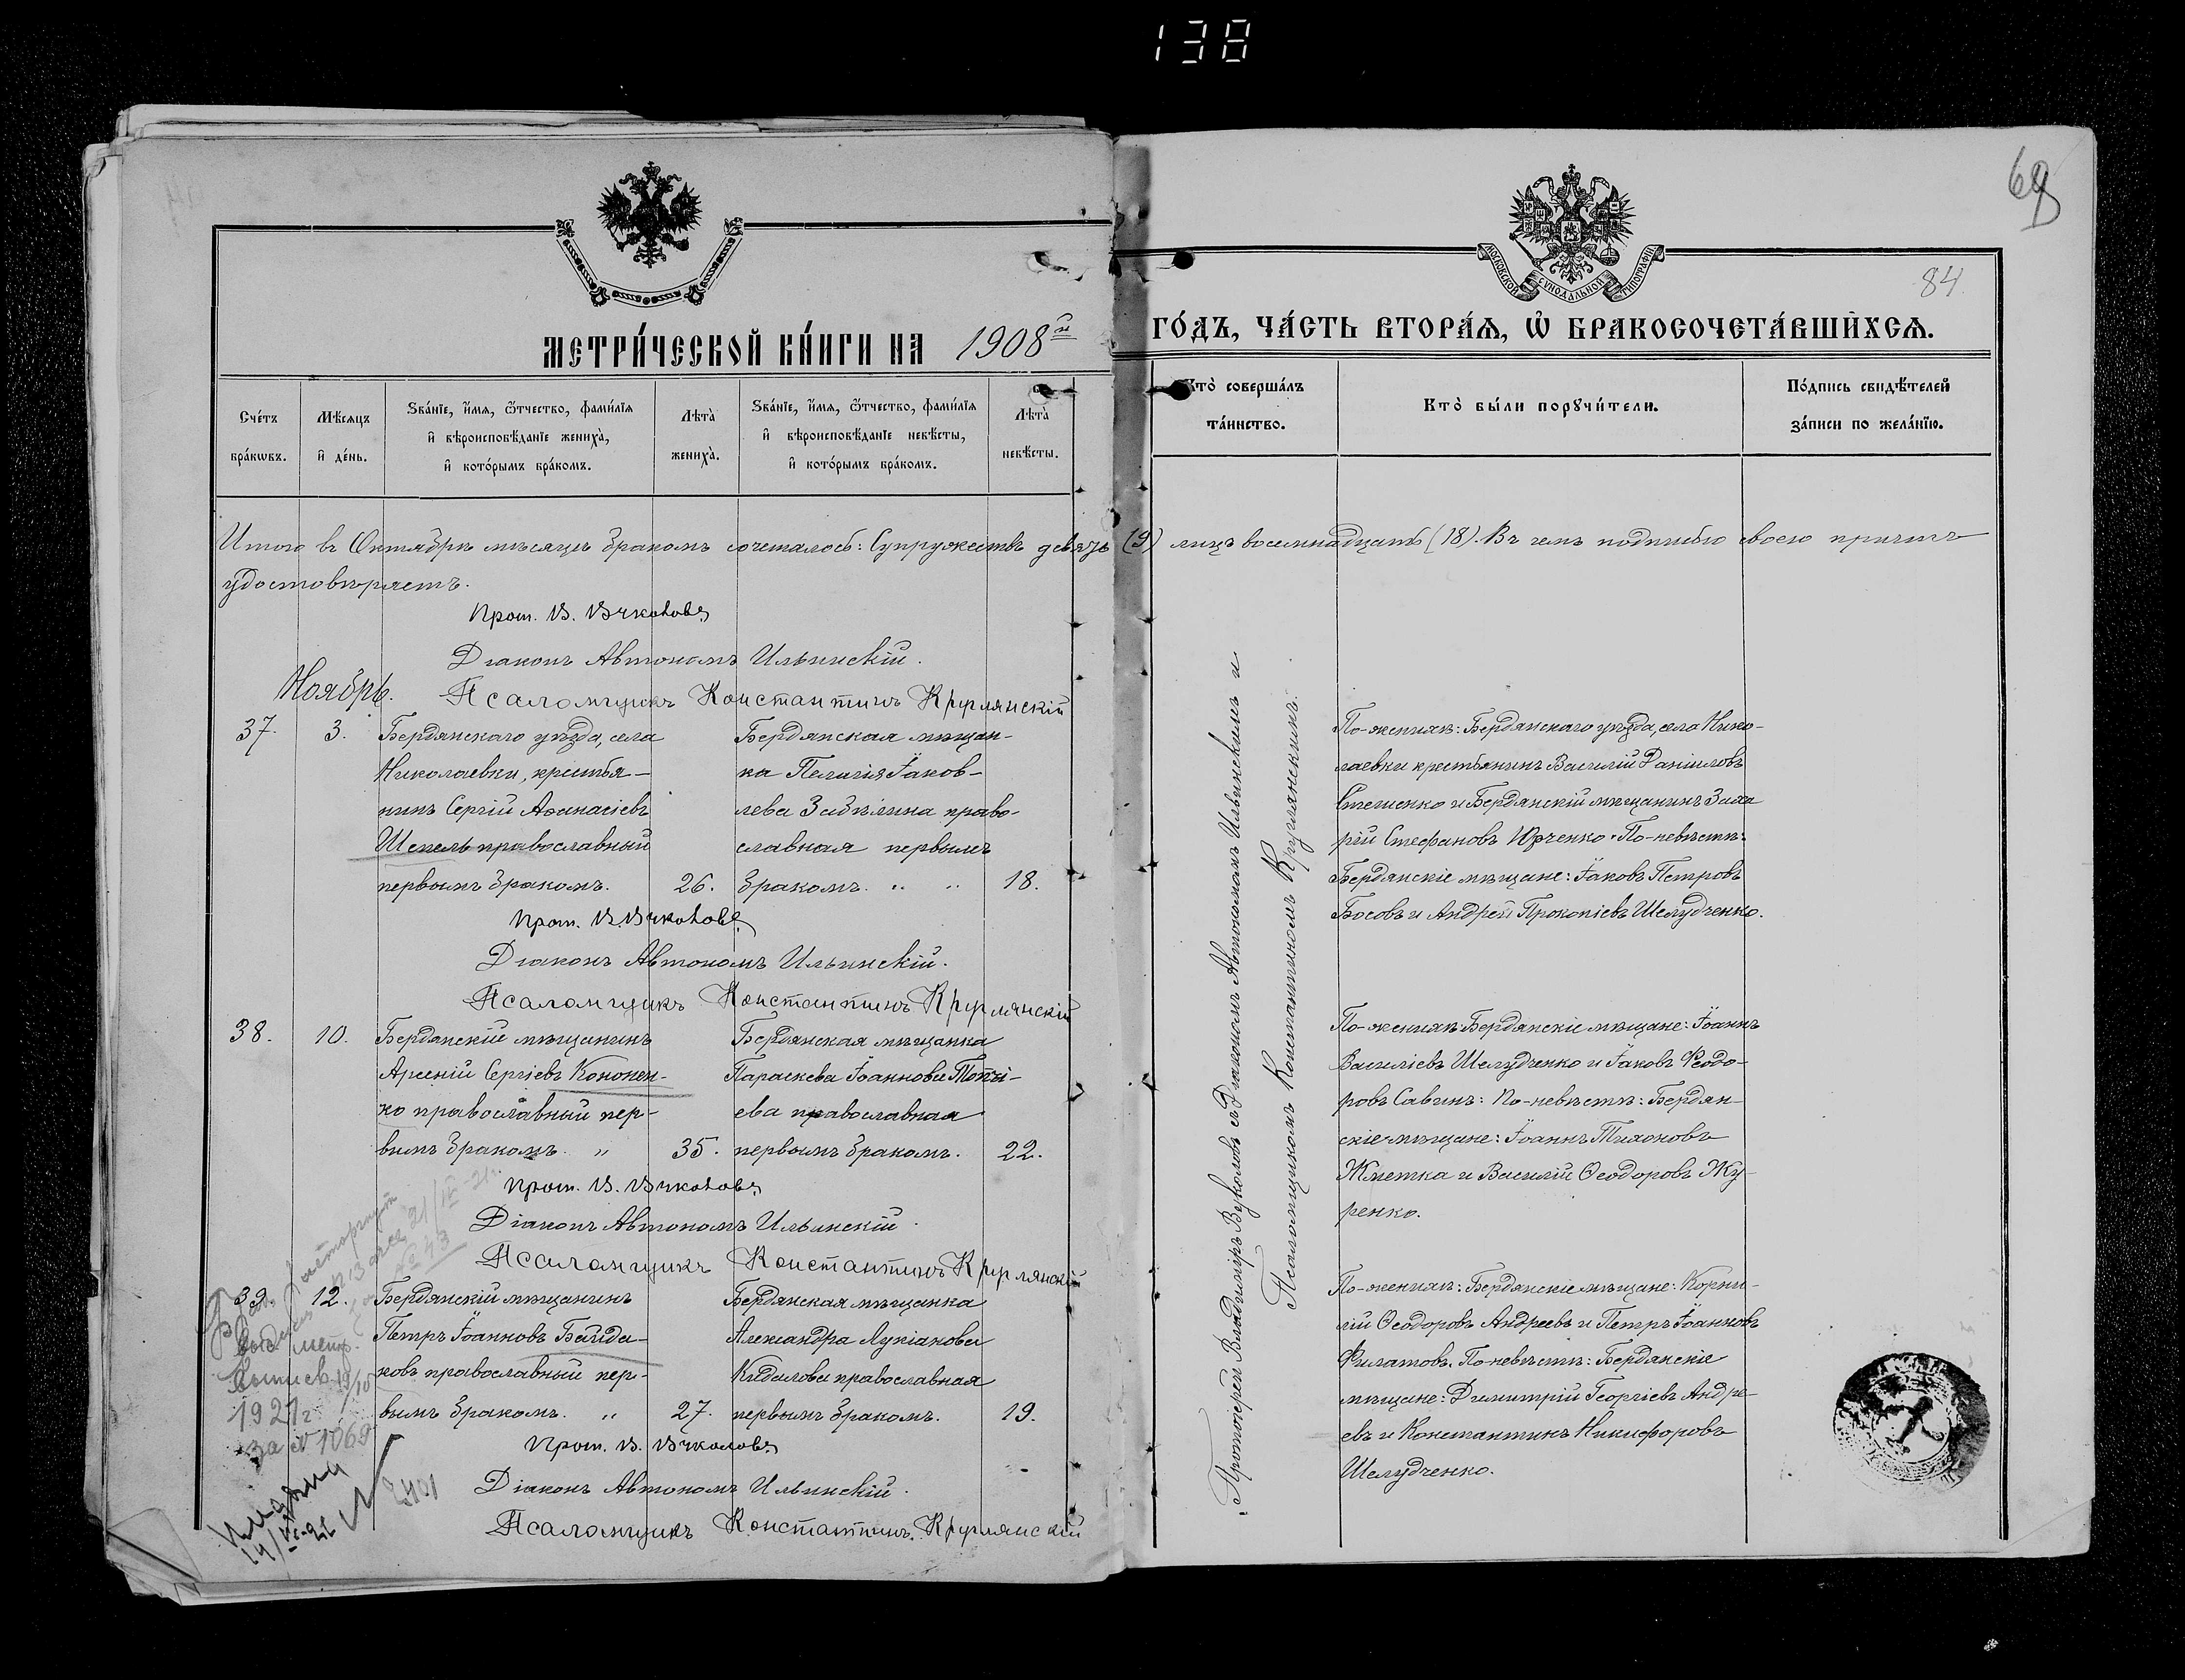 138
69
84
МЕТРИ́ЧЕСКОЙ КНИ́ГИ НА 1908й ГО́ДЪ, ЧА́СТЬ ВТОРА́Я, Ѡ БРАКОСОЧЕТА́ВШИХСЯ.
МОСКОВСКОЙ СѴНОДАЛЬНОЙ ТИПОГРАФІИ
Сче́тъ бра́кѡвъ.
Мѣ́сяцъ и де́нь.
Ѕва́нїе, и́мя, ѻ́тчество, фами́лїя и вѣроисповѣ́данїе жениха̀, и кото́рымъ бра́комъ.
Лѣта̀ жениха̀.
Ѕва́нїе, и́мя, ѻ́тчество, фами́лїя и вѣроисповѣ́данїе невѣ́сты, и кото́рымъ бра́комъ.
Лѣта̀ невѣ́сты.
Кто̀ соверша́лъ та́инство.
Кто̀ бы́ли порꙋчи́тели.
По́дпись свидѣ́телей за́писи по жела́нїю.
Итого въ Октябрѣ мѣсяцѣ бракомъ сочеталось: Супружествъ девять (9) лицъ восемнадцать (18). Въ чемъ подписью своею причтъ
удостовѣряетъ.
Прот. В. Вуколовъ
Діаконъ Автономъ Ильинскій.
Псаломщикъ Константинъ Круглянскій
Ноябрь.
37. 3.
Бердянскаго уѣзда, села
Николаевки, крестья-
нинъ Сергій Аѳанасіевъ
Шепель православный
первымъ бракомъ. 26.
Бердянская мѣщан-
ка Пелагія Іаков-
лева Забѣлина право-
славная первымъ
бракомъ. " " 18.
По-женихѣ: Бердянскаго уѣзда, села Нико-
лаевки крестьянинъ Василій Даніиловъ
Стешенко и Бердянскій мѣщанинъ Заха
рій Стефановъ Юрченко. По-невѣстѣ:
Бердянскіе мѣщане: Іаковъ Петровъ
Босовъ и Андрей Прокопіевъ Шелудченко.
Прот. В. Вуколовъ
Діаконъ Автономъ Ильинскій.
Псаломщикъ Константинъ Круглянскій
38. 10.
Бердянскій мѣщанинъ
Арсеній Сергіевъ Кононен-
ко православный пер-
вымъ бракомъ. " 35.
Бердянская мѣщанка
Параскева Іоаннова
ева православная
первымъ бракомъ. 22.
По-женихѣ: Бердянскіе мѣщане: Іоаннъ
Василіевъ Шелудченко и Іаковъ Ѳеодо-
ровъ Савинъ: По-невѣстѣ: Бердян-
скіе мѣщане: Іоаннъ Тихоновъ
Жметка и Василій Ѳеодоровъ Жу-
ренко.
Прот. В. Вуколовъ
Діаконъ Автономъ Ильинскій.
Псаломщикъ Константинъ Круглянскій
39. 12.
Бердянскій мѣщанинъ
Петръ Іоанновъ Байда-
ковъ православный пер-
вымъ бракомъ. " 27.
Бердянская мѣщанка
Александра Лукіанова
Кидалова православная
первымъ бракомъ. 19.
По-женихѣ: Бердянскіе мѣщане: Корни-
лій Ѳеодоровъ Андреевъ и Петръ Іоанновъ
Филатовъ. По-невѣстѣ: Бердянскіе
мѣщане: Димитрій Георгіевъ Андре-
евъ и Константинъ Никифоровъ
Шелудченко.
Прот. В. Вуколовъ
Діаконъ Автономъ Ильинскій.
Псаломщикъ Константинъ Круглянскій
Протоіерей Владиміръ Вуколовъ съ Діакономъ Автономомъ Ильинскимъ и
Псаломщикомъ Константиномъ Круглянскимъ.
1921 г
за № 1069